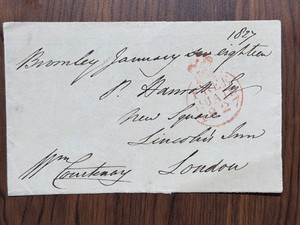 1827
Bromley January six eighteen
P. Esq
New Square
Lincoln's Inn
London
Wm
Courtenay